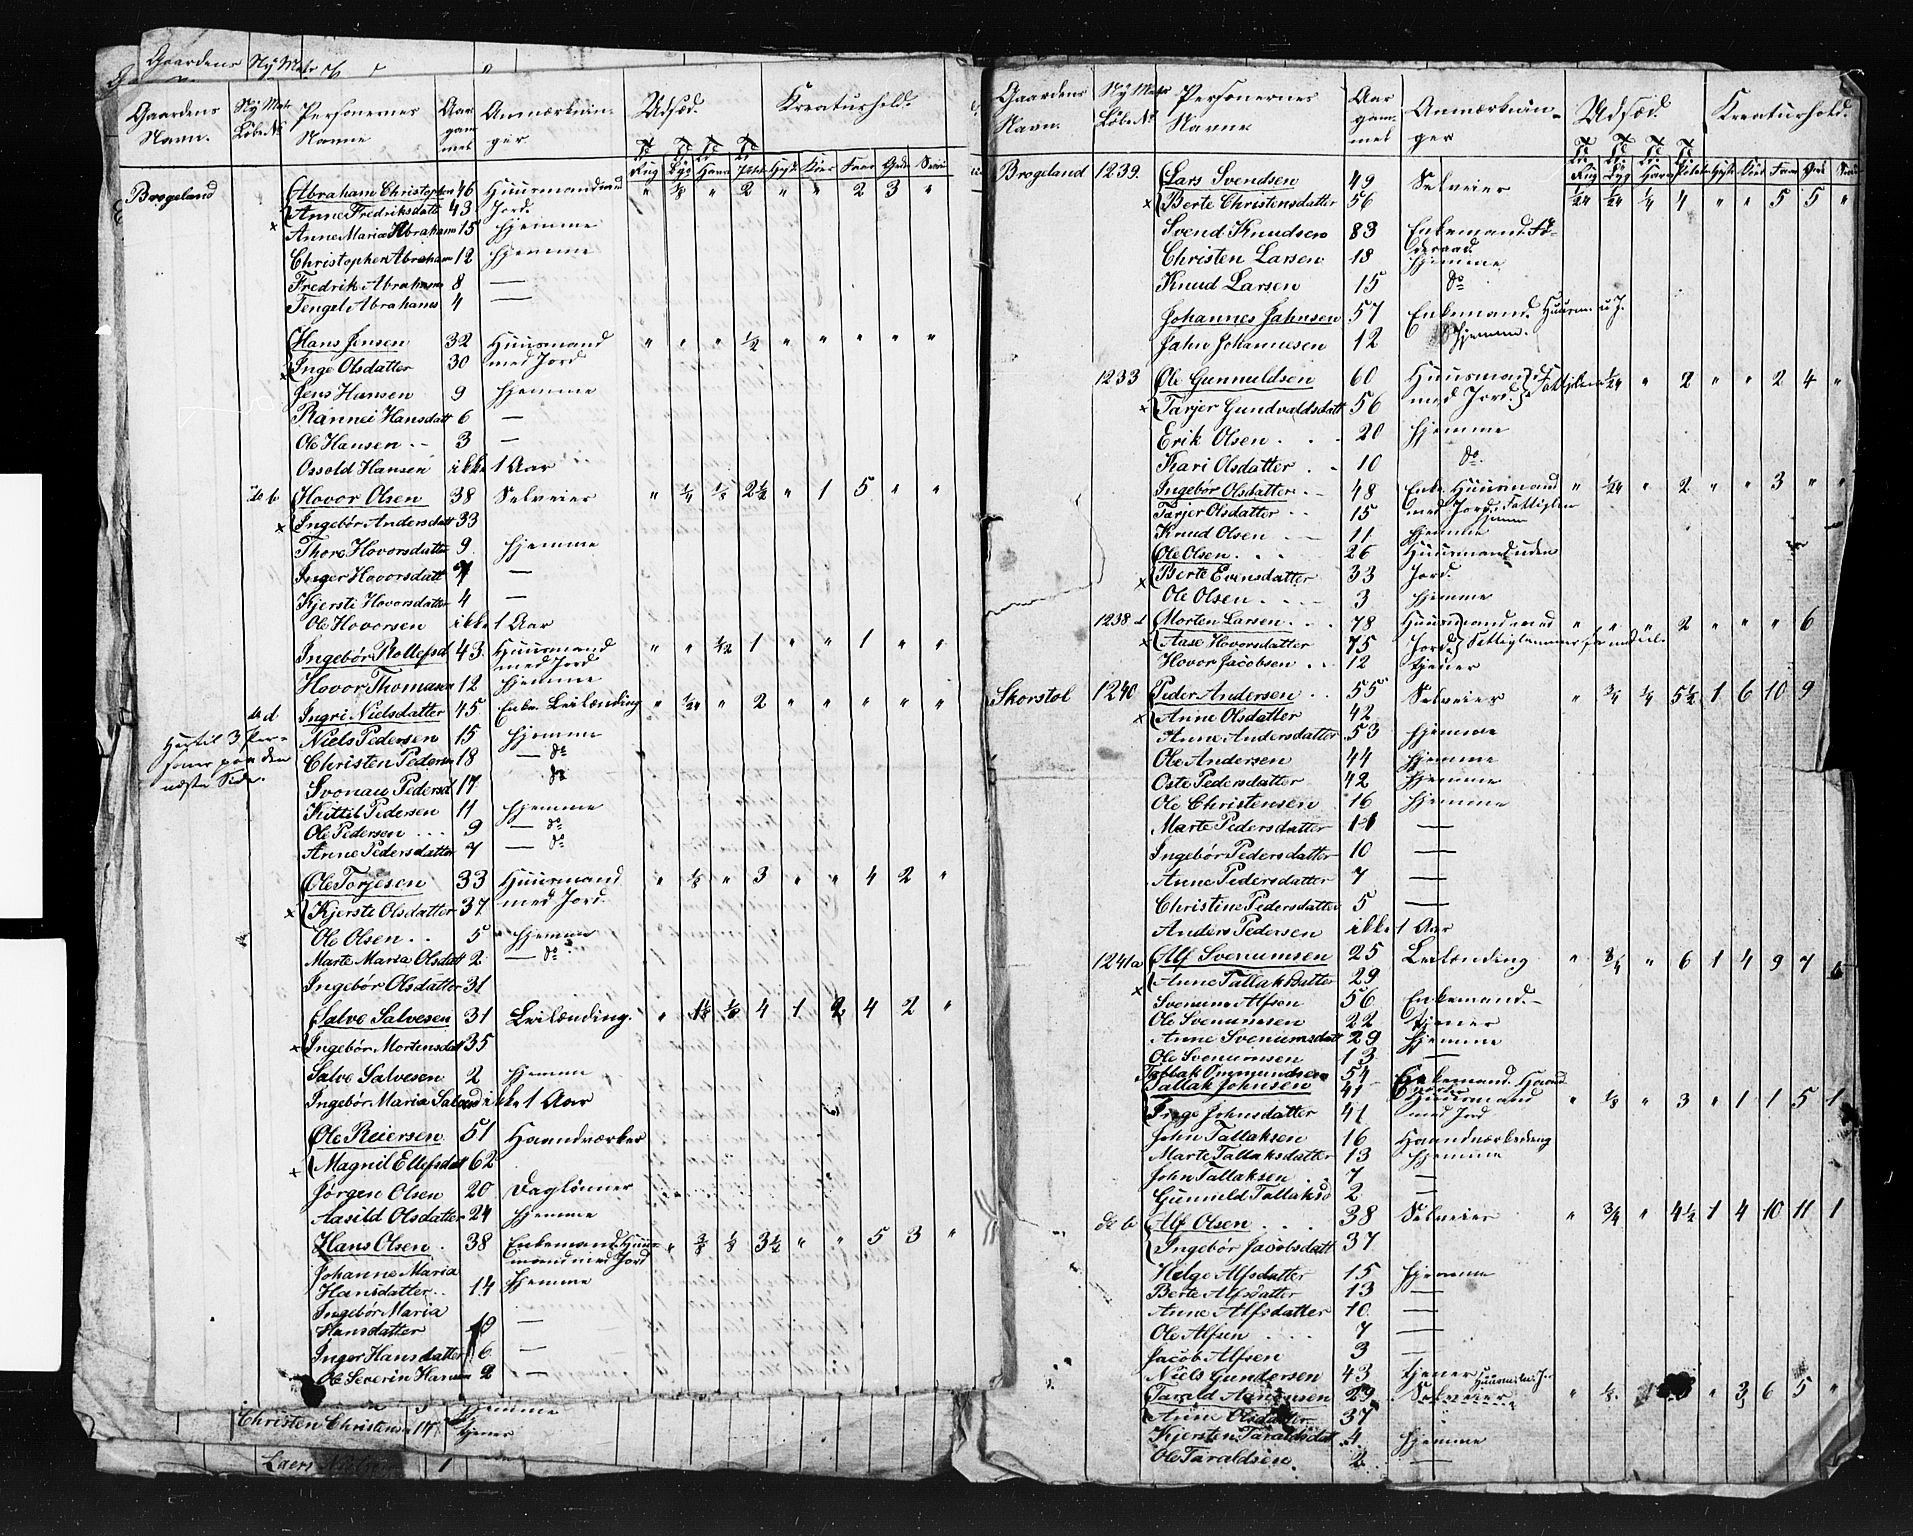 Gaardens Ny Matr
Gaardens Navn. Ny Matr Løbe No Personernes Navne Aar gammel Anmærkninger Udsæd. Kreaturhold.
Rug Byg Havre Potet Heste Kiør Faar Geder Sviin
Brogeland Abraham Christophers 46 Huusmand med " 1/8 " 2 " " 2 3 "
Anne Fredriksdatt 43 Jord.
x Anne Maria Abraham 15 hjemme
Christopher Abraham 12 hjemme
Fredrik Abrahams 8 —
Tengel Abrahams 4 —
Hans Jensen 32 Huusmand " " " 1/2 " " " " "
x Inge Olsdatter 30 med Jord
Jens Hansen 9 hjemme
Rannei Hansdatt 6 —
Ole Hansen 3 —
Ossold Hansen ikke 1 Aar
do b Hovor Olsen 38 Selveier " 1/4 1/8 2 1/2 " 1 5 " "
x Ingebør Andersdatt 33
Thore Hovorsdatter 9 hjemme
Inger Hovorsdatt 7 —
Kjersti Hovorsdatter 4 —
Ole Hovorsen ikke 1 Aar
Ingebør Rollefsd 43 Huusmand " " 1/12 1 " " 1 " "
med Jord
Hovor Thomasen 12 hjemme
do d Ingri Nielsdatter 45 Enke. Leilænding " 1/24 " 2 " " " " "
Hertil 3 Personer paa den næste Side.
Niels Pedersen 15 hjemme
Christen Pedersen 18 — do
Svonau Pedersd 17 do
Kittil Pedersen 11 hjemme
Ole Pedersen 9 — do
Anne Pedersdatter 7 — do
Ole Torjesen 33 Huusmand " 1/8 " 3 " " 4 2 "
x Kjersti Olsdatter 37 med Jord
Ole Olsen 5 hjemme
Marte Maria Olsdatt 2 — do
Ingebør Olsdatter 31
Salve Salvesen 31 Leilænding. " 1/8 4 1 2 4 2 "
x Ingebør Mortensdatt 35
Salve Salvesen 2 hjemme
Ingebør Maria Salvesd ikke 1 Aar
Ole Reiersen 51 Haandværker
x Magnil Ellefsdatt 62
Jørgen Olsen 20 Daglønner
Aasild Olsdatter 24 hjemme
Hans Olsen 38 Enkemand. Huus- " 3/8 1/8 3 1/2 " " 5 3 "
mand med Jord
Johanne Maria
Hansdatter 14 hjemme
Ingebør Maria
Hansdatter —
Inger Hansdatter 6 —
Ole Severin Hansen 2 —
hjemme
Christen Christensen 17 tjener
Laers
Gaardens Navn. Ny Matr Løbe No Personernes Navne Aar gammel Anmærkninger Udsæd. Kreaturhold.
Rug Byg Havre Potet Heste Kiør Faar Geder Sviin
Brogeland 1239. Lars Svendsen 49 Selveier 1/24 1/24 1/4 4 " " 5 5 "
x Berte Christensdatter 56
Svend Knudsen 83 Enkemand. Fø-
deraad.
Christen Larsen 18 hjemme
Knud Larsen 15 do
Johannes Jahnsen 57 Enkemand. Huusm. u J.
Jahn Johannesen 12 hjemme.
1233 Ole Gunnuldsen 60 Huusmand Fattiglem 1/24 " 2 " " 2 4 "
med Jord
x Tarjer Gundvaldsdatt 56
Erik Olsen 20 hjemme
Kari Olsdatter 10 do
Ingebør Olsdatter 48 Enke Huusmand " 1/24 " 2 " " 3 " "
med Jord. Fattiglem
Tarjer Olsdatter 15 hjemme
Knud Olsen 11 hjemme
Ole Olsen 26 Huusmand uden
x Berte Evensdatter 33 Jord.
Ole Olsen 3 hjemme
1238 Morten Larsen 78 Huusmand med " " " 2 " " " 6
x Aase Hovorsdatter 75 Jord.
Hovor Jacobsen 12 tjener
Skorstol 1240 Peder Andersen 55 Selveier " 3/4 1/4 5 1/2 1 6 10 9
x Anne Olsdatter 42
Anne Andersdatter 53 hjemme
Ole Andersen 44 hjemme
Oste Pedersdatter 42 hjemme
Ole Christensen 16 hjemme
Marte Pedersdatter 11 —
Ingebør Pedersdatter 10 —
Anne Pedersdatter 7 —
Christine Pedersdatter 5 —
Anders Pedersen ikke 1 Aar
1241a Alf Svenumsen 25 Leilænding " 3/4 " 6 1 4 9 7
x Anne Tallaksdatter 29
Svenum Alfsen 56 Enkemand.
Ole Svenumsen 22 tjener
Anne Svenumsdatt 29 hjemme
Ole Svenumsen 13 —
Tallak Ommundsen 54 Enkemand. Haand-
værker
Tallak Johnsen 41 Huusmand " 1/8 " 3 " 1 1 5 1
med Jord
Inge Johnsdatter 41
John Tallaksen 16 Haandværksdreng
Marte Tallaksdatter 13 hjemme
John Tallaksen 7 —
Gunnuld Tallaksd 2 —
do b Alf Olsen 38 Selveier " 3/4 " 4 1/2 1 4 10 11 1
Ingebør Jacobsdatt 37
Helge Alfsdatter 15 hjemme
Berte Alfsdatter 13 —
Anne Alfsdatter 10 —
Ole Alfsen 7 —
Jacob Alfsen 3 —
Niels Gundersen 43 tjener
Tarald Aanensen 29 Selveier " 3 6 5 "
Anne Olsdatter 37
Kjersten Taraldsdat 4 hjemme
Ole Taraldsen. 2 —